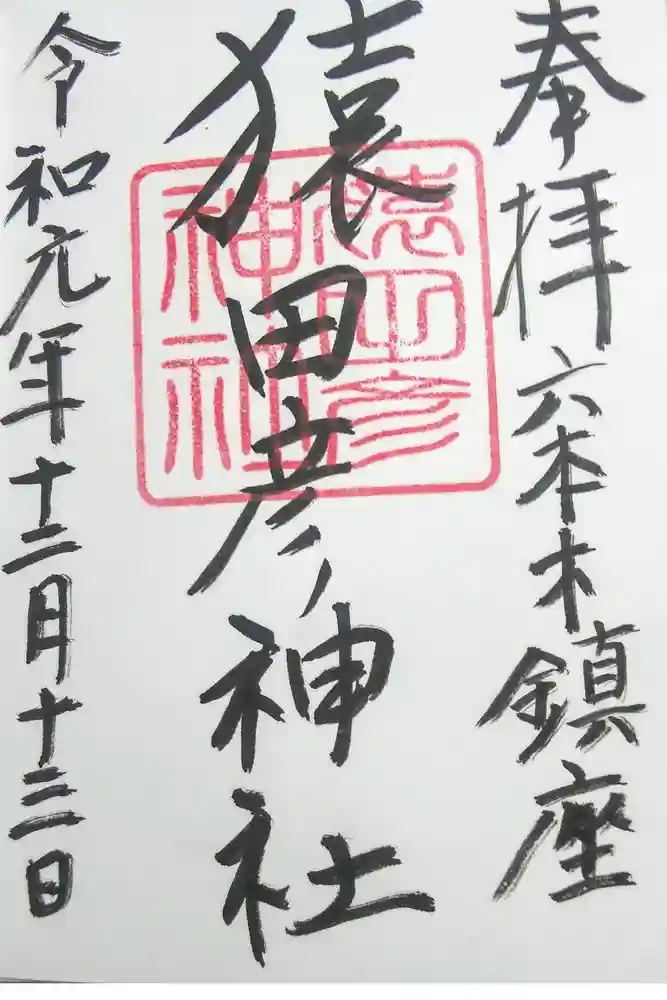 奉拝 六本木鎮座
猿田彦神社
猿田彦
神社
令和元年十二月十三日